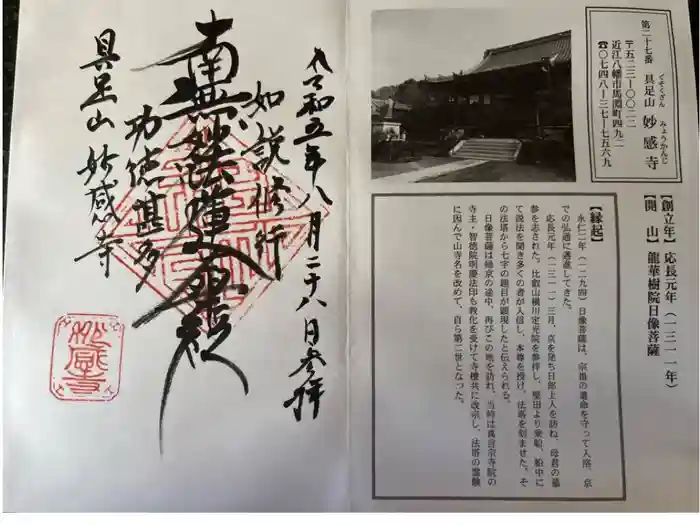 第二十七番 具足山 妙感寺
ぐそくざん
みょうかんじ
〒五二三-〇〇二二
近江八幡市馬淵町四九二
☎〇七四八-三七-七五六九
【創立年】応長元年(一三一一年)
【開 山】龍華樹院日像菩薩
【縁起】
永仁二年(一二九四)日像菩薩は、宗祖の遺命を守って入洛、京
での弘通に邁進してきた。
応長元年(一三一一)三月、京を発ち日郎上人を訪ね、母君の墓
参を志された。比叡山横川定光院を参拝し、堅田より乗船、船中に
て説法を聞き多くの者が入信し、本尊を授け、法塔を刻ませた。そ
の法塔から七字の題目が顕現したと伝えられる。
日像菩薩は帰京の途中、再びこの地を訪れ、当時は真言宗寺院の
寺主・智徳院明慶法印も教化を受けて寺檀共に改宗し、法塔の霊験
に因んで山寺名を改めて、自ら第二世となった。
令和五年八月二十八日参拝
如説修行
南無妙法蓮華経
功徳甚多
具足山 妙感寺
妙感寺